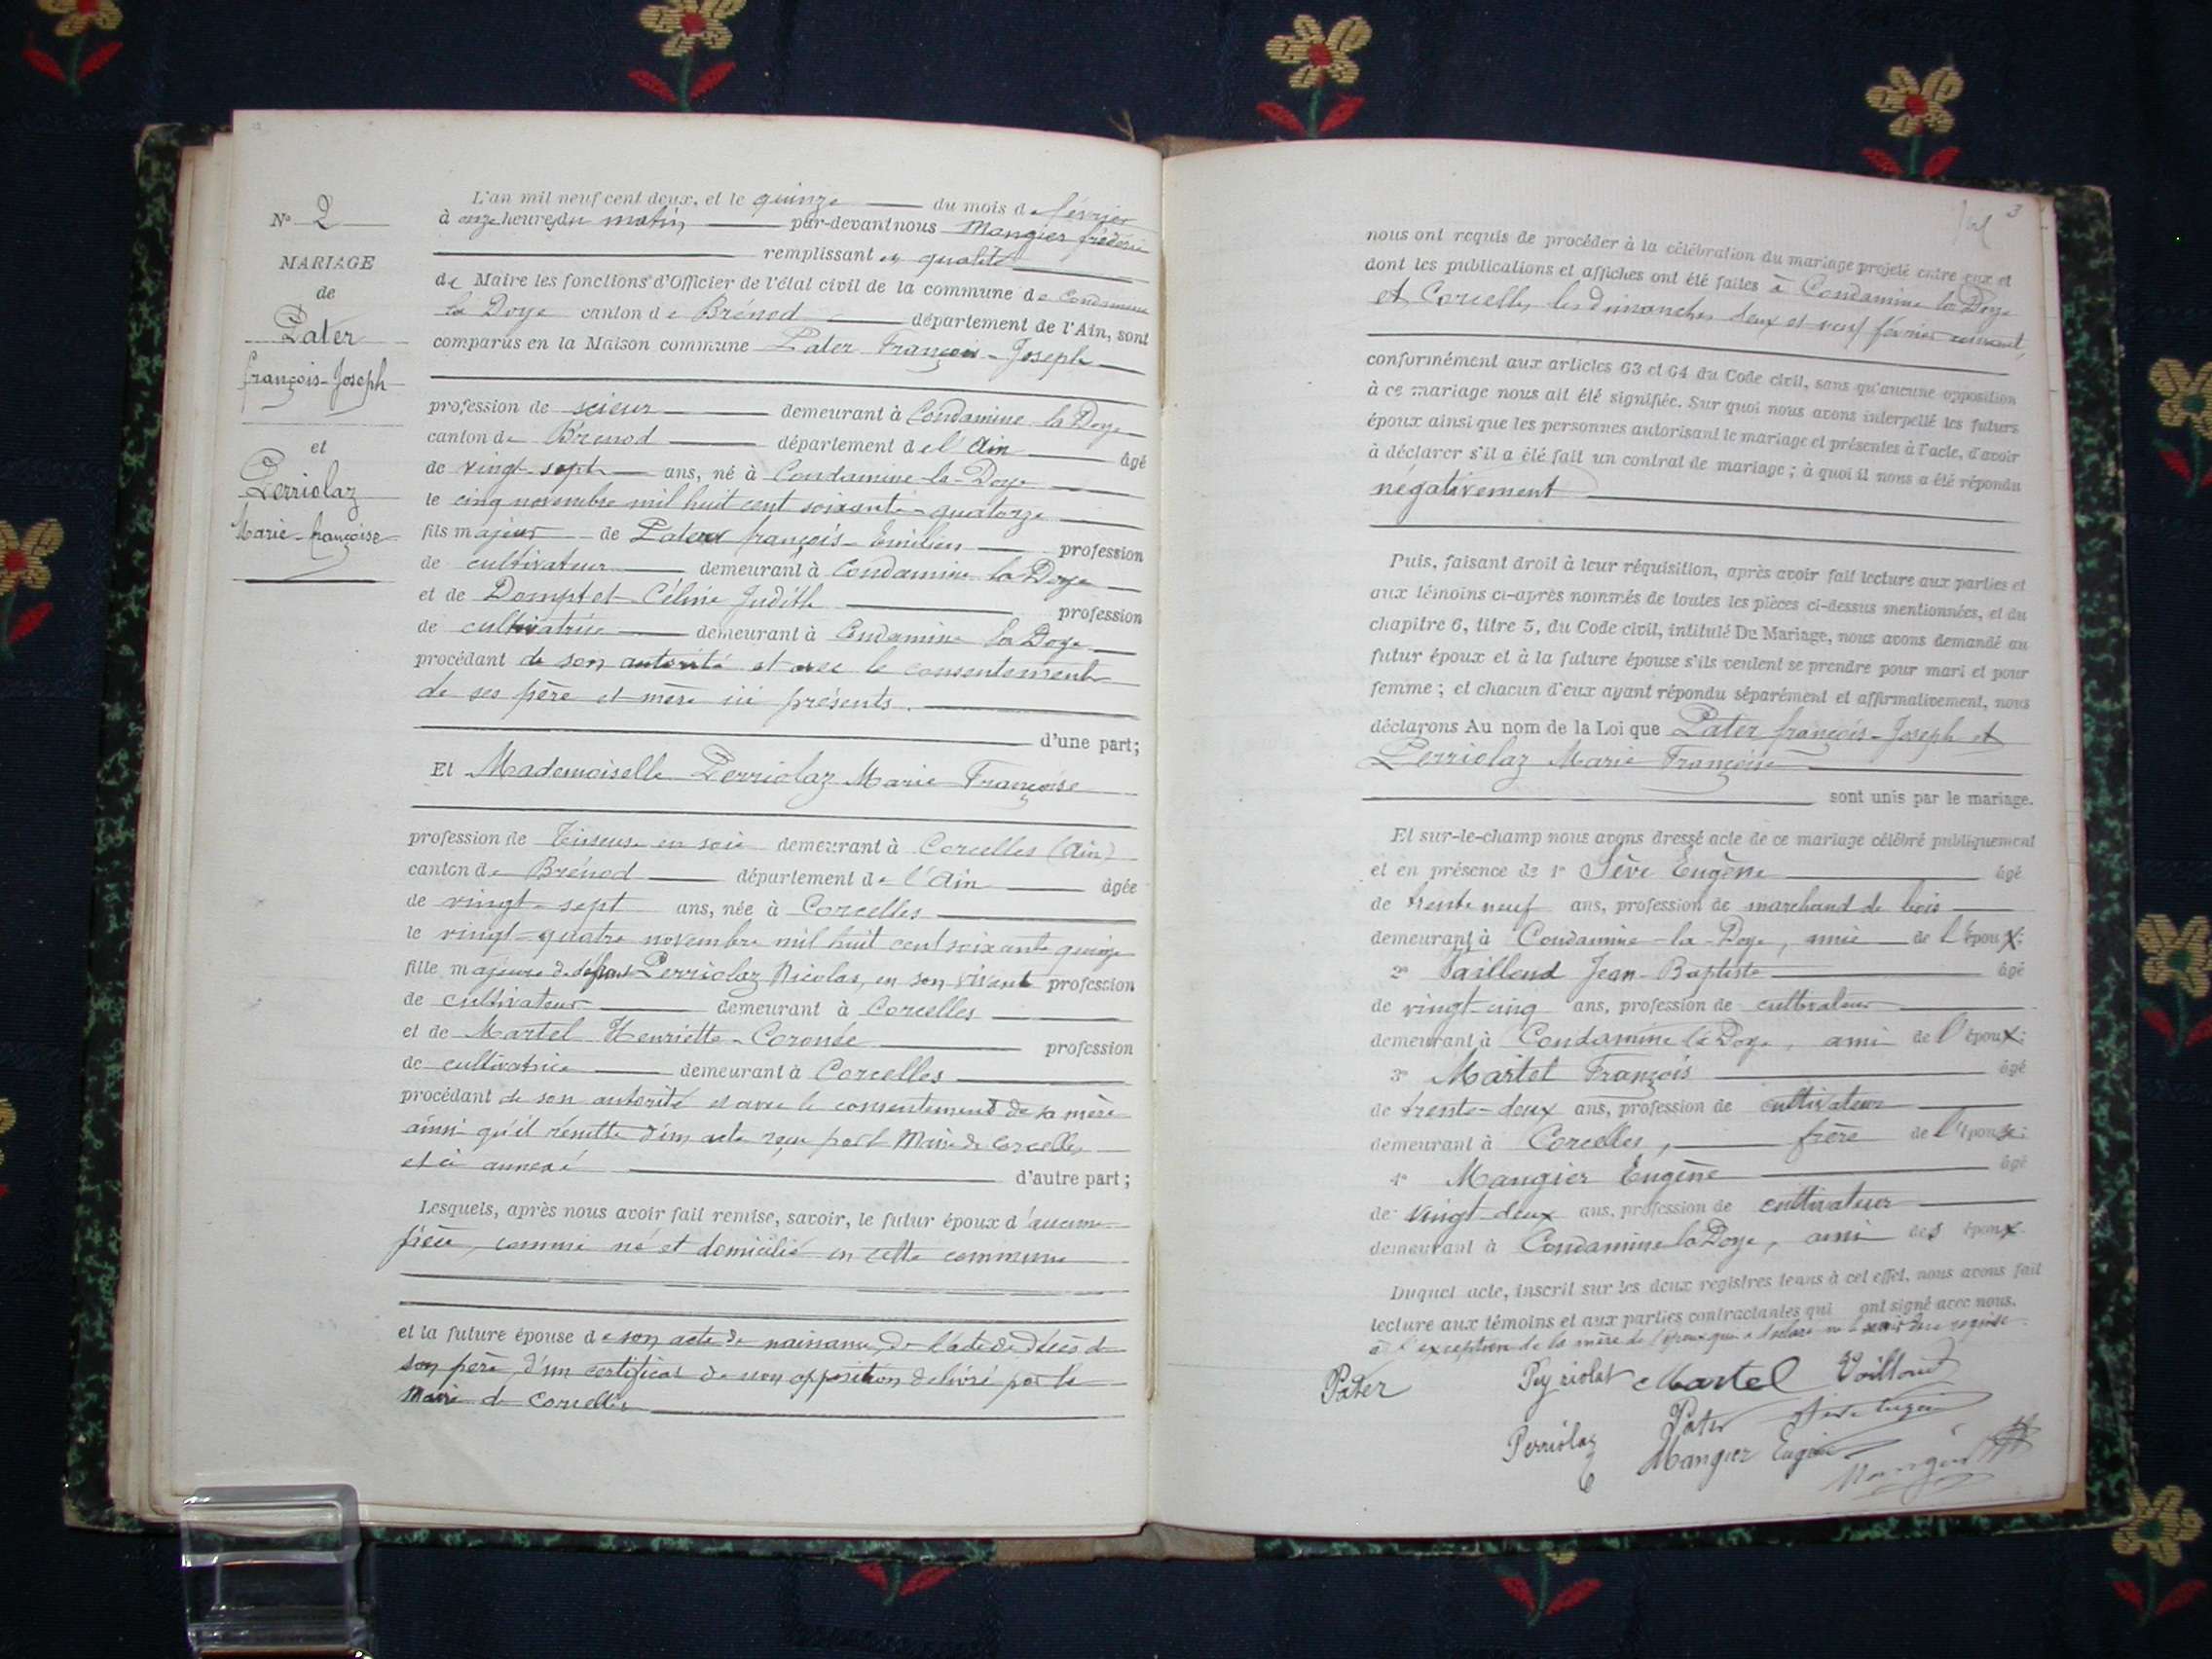 N° 2
MARIAGE
de
Pater
françois-Joseph
et
Perriolaz
Marie-françoise
L'an mil neuf cent deux, et le quinze du mois de février
à onze heures du matin par-devant nous Mangier frédéric
remplissant en qualité
de Maire les fonctions d'Officier de l'état civil de la commune de Condamine
la Doye canton de Brénod département de l'Ain, sont
comparus en la Maison commune Pater François-Joseph
profession de scieur demeurant à Condamine la Doye
canton de Brénod département de l'Ain âgé
de vingt-sept ans, né à Condamine-la-Doye
le cinq novembre mil huit cent soixante-quatorze
fils majeur de Pater françois-Emilien profession
de cultivateur demeurant à Condamine la Doye
et de Domptet Céline Judith profession
de cultivatrice demeurant à Condamine la Doye
procédant de son autorité et avec le consentement
de ses père et mère ici présents.
d'une part;
Et Mademoiselle Perriolaz Marie Françoise
profession de Tisseuse en soie demeurant à Corcelles (Ain)
canton de Brénod département de l'Ain âgée
de vingt-sept ans, née à Corcelles
le vingt-quatre novembre mil huit cent soixante quinze
fille majeure de défunt Perriolaz Nicolas, en son vivant profession
de cultivateur demeurant à Corcelles
et de Martel Henriette- profession
de cultivatrice demeurant à Corcelles
procédant de son autorité et avec le consentement de sa mère
ainsi qu'il résulte d'un acte reçu par le Maire de Corcelles
et ci annexé d'autre part;
Lesquels, après nous avoir fait remise, savoir, le futur époux d'aucune
pièce, comme né et domicilié en cette commune
et la future épouse de son acte de naissance, de l'acte de décès de
son père, d'un certificat de non opposition délivré par le
Maire de Corcelles
3
nous ont requis de procéder à la célébration du mariage projeté entre eux et
dont les publications et affiches ont été faites à Condamine la Doye
et Corcelles, les dimanches deux et neuf février courant,
conformément aux articles 63 et 64 du Code civil, sans qu'aucune opposition
à ce mariage nous ait été signifiée. Sur quoi nous avons interpellé les futurs
époux ainsi que les personnes autorisant le mariage et présentes à l'acte, d'avoir
à déclarer s'il a été fait un contrat de mariage; à quoi il nous a été répondu
négativement
Puis, faisant droit à leur réquisition, après avoir fait lecture aux parties et
aux témoins ci-après nommés de toutes les pièces ci-dessus mentionnées, et du
chapitre 6, titre 5, du Code civil, intitulé Du Mariage, nous avons demandé au
futur époux et à la future épouse s'ils veulent se prendre pour mari et pour
femme; et chacun d'eux ayant répondu séparément et affirmativement, nous
déclarons Au nom de la Loi que Pater françois-Joseph et
Perriolaz Marie Françoise
sont unis par le mariage.
Et sur-le-champ nous avons dressé acte de ce mariage célébré publiquement
et en présence de 1° Sève Eugène âgé
de trente neuf ans, profession de marchand de bois
demeurant à Condamine-la-Doye, ami de l'époux;
2° Vailloud Jean-Baptiste âgé
de vingt-cinq ans, profession de cultivateur
demeurant à Condamine la Doye, ami de l'époux;
3° Martel François âgé
de trente-deux ans, profession de cultivateur
demeurant à Corcelles, frère de l'épouse;
4° Mangier Eugène âgé
de vingt-deux ans, profession de cultivateur
demeurant à Condamine la Doye, ami des époux
Duquel acte, inscrit sur les deux registres tenus à cet effet, nous avons fait
lecture aux témoins et aux parties contractantes qui ont signé avec nous.
à l'exception de la mère de l'époux qui a déclaré ne le savoir de ce requise
Pater Perriolat Martel Vailloud
Pater Sève Eugène
Perriolaz Mangier Eugène
Mangier